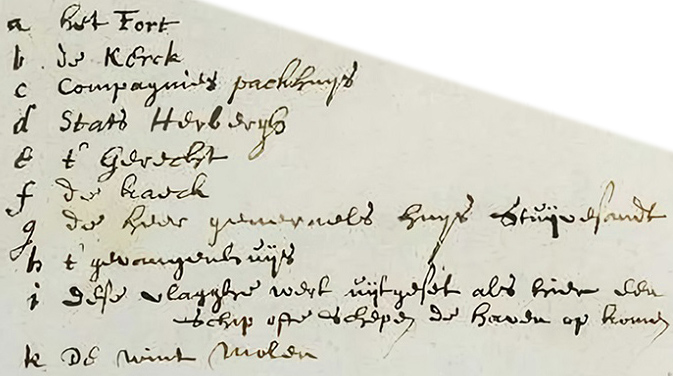 a het Fort
b de Kerck
c Compagnies packhuys
d Stats Herbergh
e t' Gerecht
f de kaeck
g de heer generaels huys Stuijvesandt
h t' gevangenhuijs
i dese vlagghe wert uijtgeset als hier een
schip ofte schepen de haven op komen
k DE wint Molen